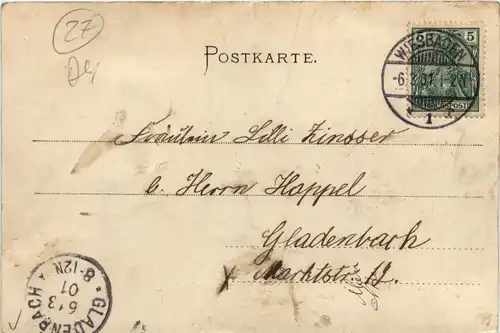 27
POSTKARTE.
5
WIESBADEN
1
Fräulein Lilli Zinsser
b. Herrn Happel
Gladenbach
Marktstr.
GLADENBACH
6 3
01
8-12N